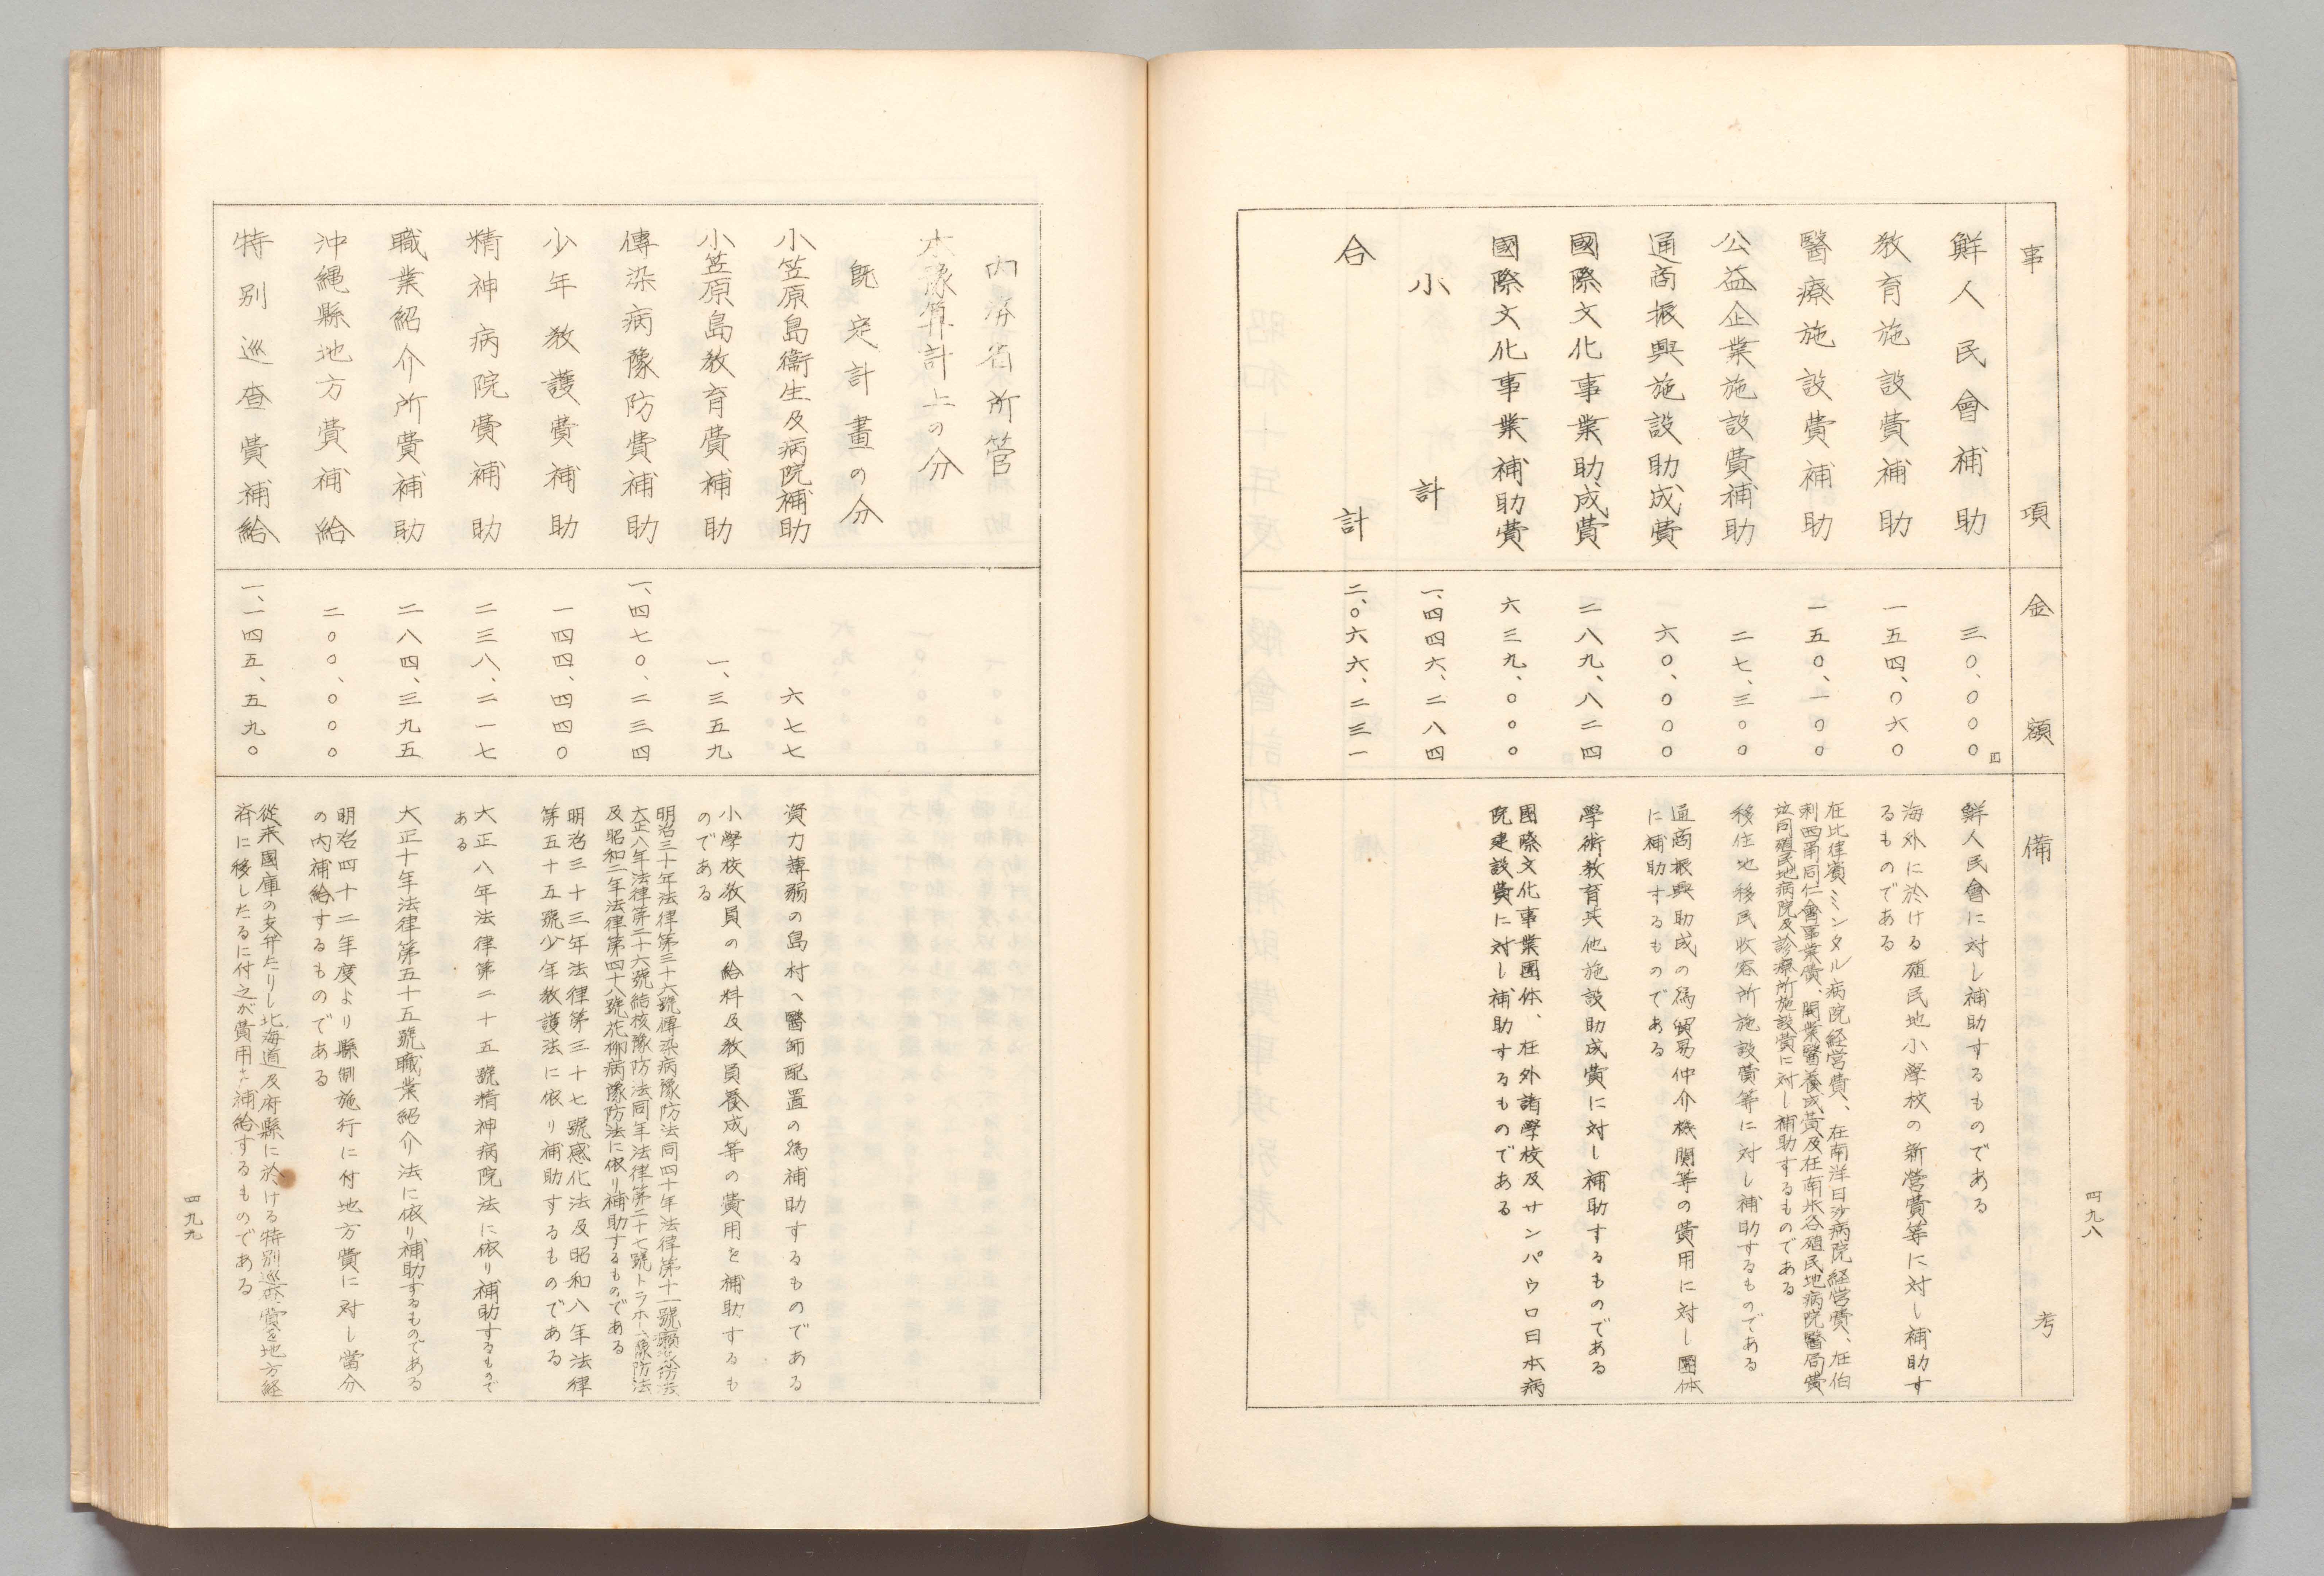 四九八
事項
金額
備考
鮮人民會補助
三〇、〇〇〇円
鮮人民會に対し補助するものである
教育施設費補助
一五四、〇六〇
海外に於ける殖民地小學校の新營費等に対し補助す
るものである
醫療施設費補助
一五〇、一〇〇
在比律賓ミンタル病院経営費、在南洋日沙病院経営費、在伯
剌西爾同仁會事業費、開業醫養成費及在南米各殖民地病院醫局費
竝同殖民地病院及診療所施設費に対し補助するものである
公益企業施設費補助
二七、三〇〇
移住地移民收容所施設費等に対し補助するものである
通商振興施設助成費
六〇、〇〇〇
通商振興助成の為貿易仲介機関等の費用に対し團体
に補助するものである
國際文化事業助成費
二八九、八二四
學術教育其他施設助成費に対し補助するものである
國際文化事業補助費
六三九、〇〇〇
國際文化事業團体、在外諸學校及サンパウロ日本病
院建設費に対し補助するものである
小計
一、四四六、二八四
合計
二、〇六六、二三一
内済省所管
本豫算計上の分
既定計畫の分
小笠原島衞生及病院補助
六七七
資力薄弱の島村へ醫師配置の為補助するものである
小笠原島教育費補助
一、三五九
小學校教員の給料及教員養成等の費用を補助するも
のである
傳染病豫防費補助
一、四七〇、二三四
明治三十年法律第三十六號傳染病豫防法同四十年法律第十一號癩豫防法
大正八年法律第二十六號結核豫防法同年法律第二十七號トラホーム豫防法
及昭和二年法律第四十八號花柳病豫防法に依り補助するものである
少年教護費補助
一四四、四四〇
明治三十三年法律第三十七號感化法及昭和八年法律
第五十五號少年教護法に依り補助するものである
精神病院費補助
二三八、二一七
大正八年法律第二十五號精神病院法に依り補助するもので
ある
職業紹介所費補助
二八四、三九五
大正十年法律第五十五號職業紹介法に依り補助するものである
沖縄縣地方費補給
二〇〇、〇〇〇
明治四十二年度より縣制施行に付地方費に対し當分
の内補給するものである
特別巡査費補給
一、一四五、五九〇
從来國庫の支弁たりし北海道及府縣に於ける特別巡査費を地方経
済に移したるに付之が費用を補給するものである
四九九